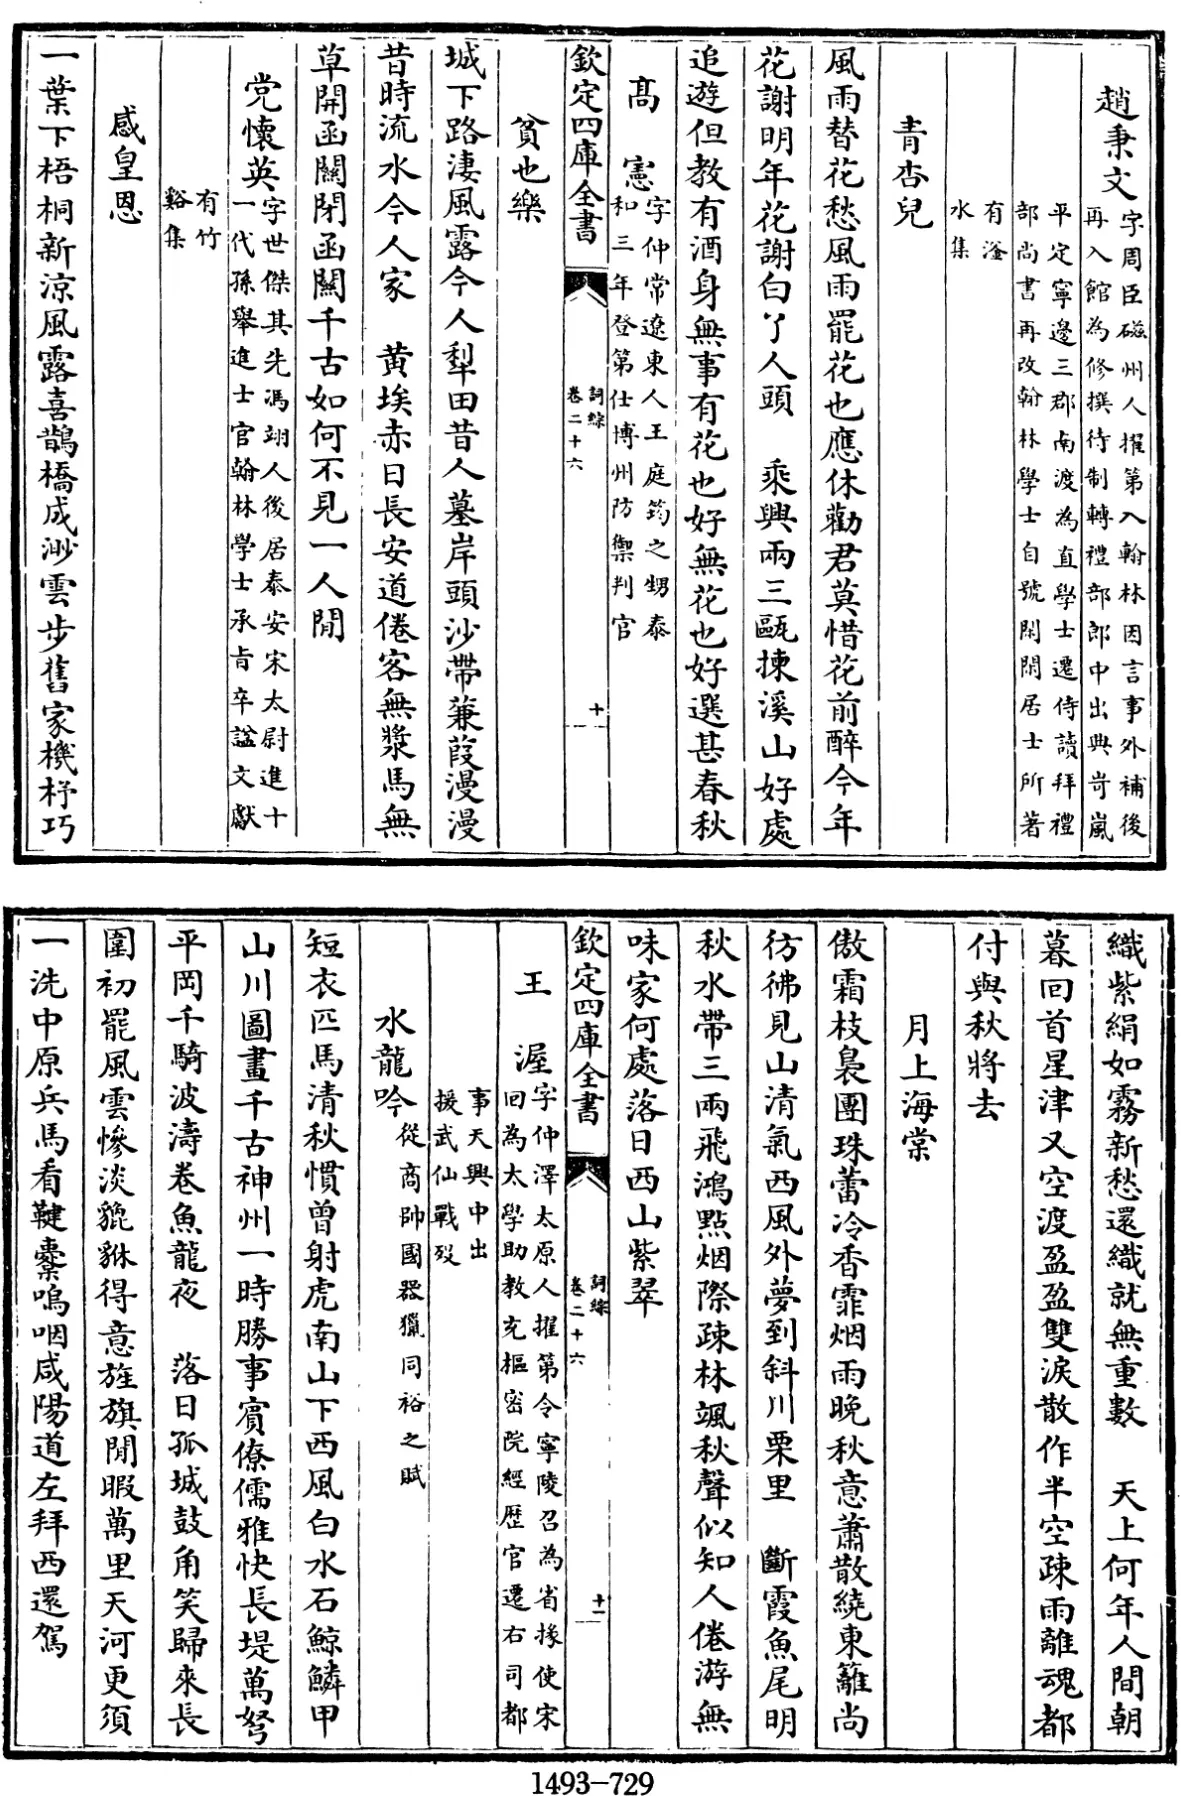 趙秉文字周臣磁州人擢第入翰林因言事外補後
再入館為修撰待制轉禮部郎中出典岢嵐
平定寧邊三郡南渡為直學士遷侍讀拜禮
部尚書再改翰林學士自號閑閑居士所著
有滏
水集
青杏兒
風雨替花愁風雨罷花也應休勸君莫惜花前醉今年
花謝明年花謝白了人頭　乘興兩三甌揀溪山好處
追遊但教有酒身無事有花也好無花也好選甚春秋
高　憲字仲常遼東人王庭筠之甥泰
和三年登第仕博州防禦判官
欽定四庫全書
詞綜
卷二十六
十
貧也樂
城下路淒風露今人犁田昔人墓岸頭沙帶蒹葭漫漫
昔時流水今人家　黄埃赤日長安道倦客無漿馬無
草開函關閉函關千古如何不見一人閒
党懷英字世傑其先馮翊人後居泰安宋太尉進十
一代孫舉進士官翰林學士承旨卒諡文獻
有竹
谿集
感皇恩
一葉下梧桐新涼風露喜鵲橋成渺雲步舊家機杼巧
織紫綃如霧新愁還織就無重數　天上何年人間朝
暮回首星津又空渡盈盈雙淚散作半空疎雨離魂都
付與秋將去
月上海棠
傲霜枝裊團珠蕾冷香霏烟雨晚秋意蕭散繞東籬尚
彷彿見山清氣西風外夢到斜川栗里　斷霞魚尾明
秋水帶三兩飛鴻點烟際疎林颯秋聲似知人倦游無
味家何處落日西山紫翠
欽定四庫全書
詞綜
卷二十六
十一
王　渥字仲澤太原人擢第令寧陵召為省掾使宋
回為太學助教充樞密院經歷官遷右司都
事天興中出
援武仙戰歿
水龍吟從商帥國器獵同裕之賦
短衣匹馬清秋慣曾射虎南山下西風白水石鯨鱗甲
山川圖畫千古神州一時勝事賓僚儒雅快長堤萬弩
平岡千騎波濤卷魚龍夜　落日孤城鼓角笑歸來長
圍初罷風雲慘淡貔貅得意旌旗閒暇萬里天河更須
一洗中原兵馬看鞬櫜嗚咽咸陽道左拜西還駕
1493—729